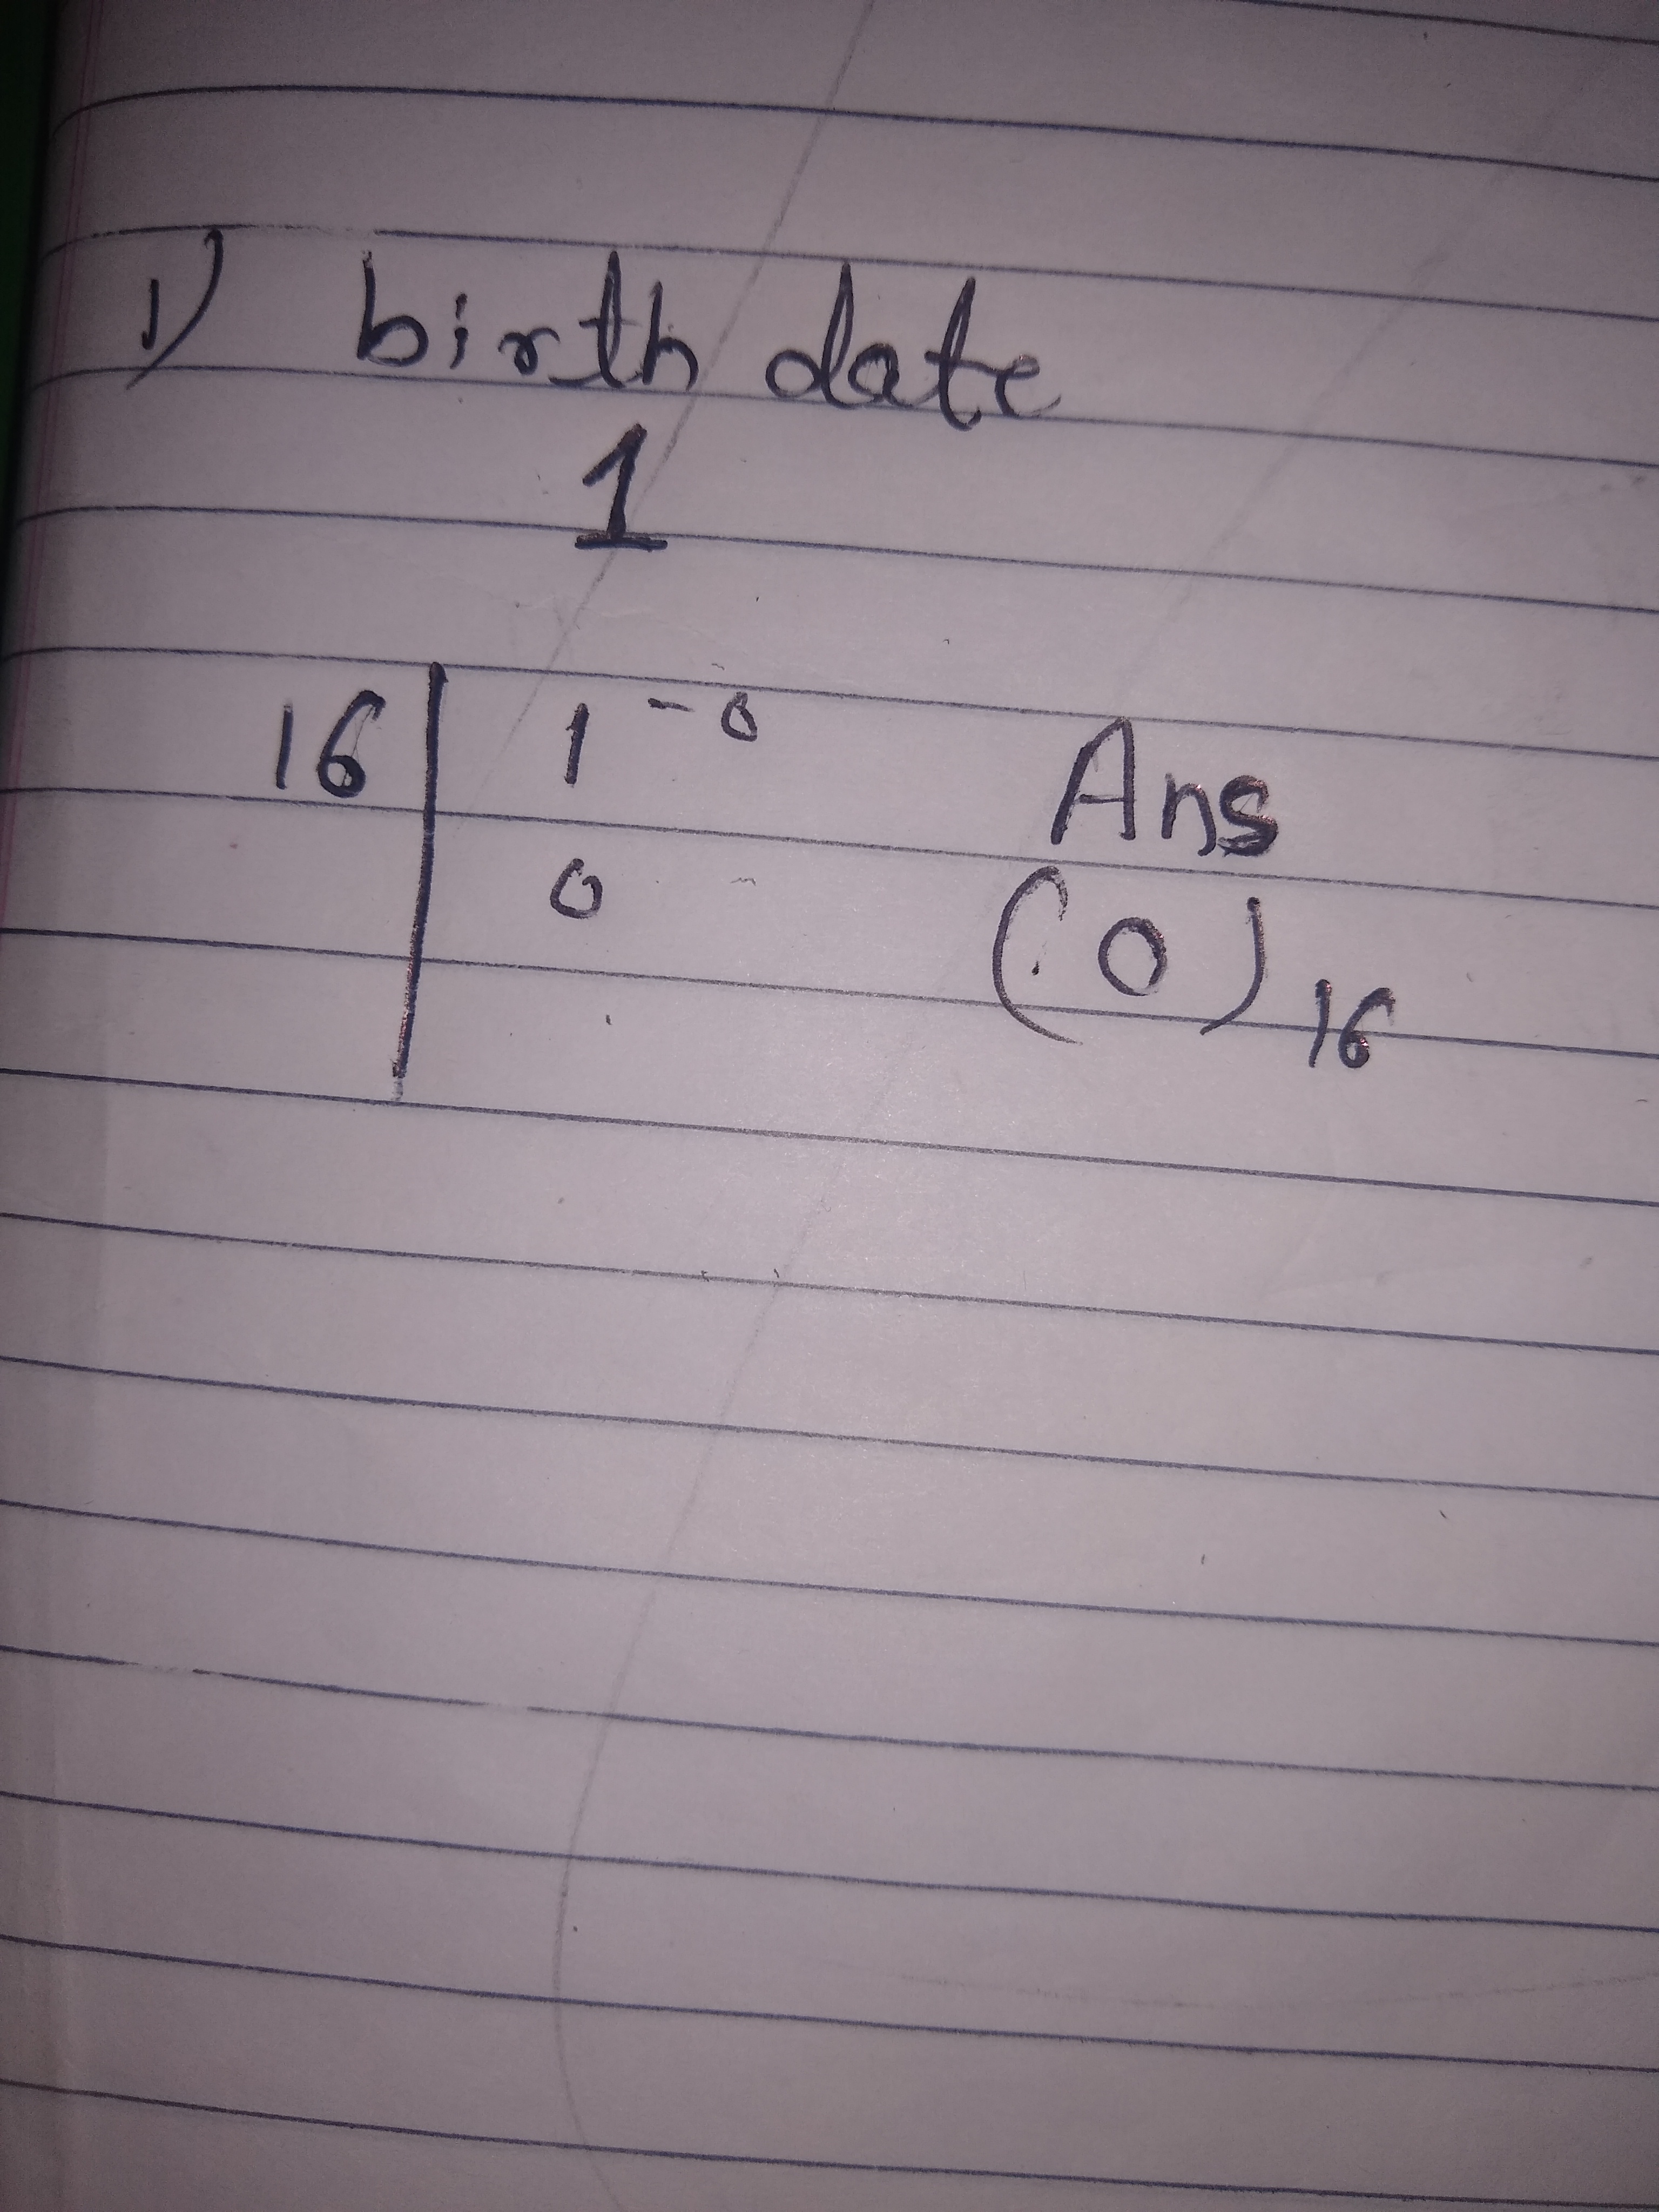 1) birth date
1
16 | 1 - 0
0
Ans
(0)16